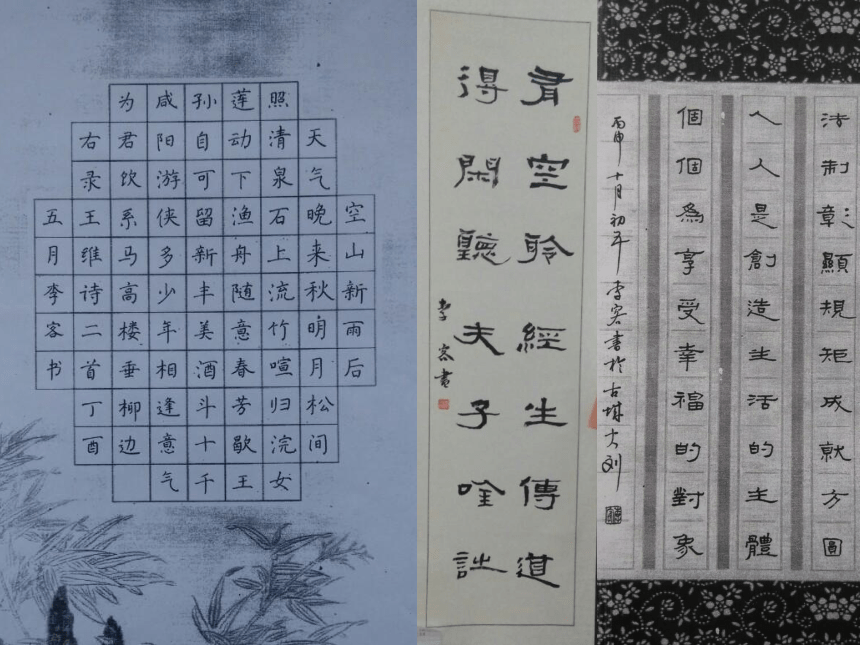 空山新雨后
天气晚来秋明月松间
照清泉石上流竹喧归浣女
莲动下渔舟随意春芳歇王
孙自可留新丰美酒斗十千
咸阳游侠多少年相逢意气
为君饮系马高楼垂柳边
右录王维诗二首丁酉
五月李客书
有空聆經生傳道
得閑聽夫子唫
李客書
法制彰顯規矩成就方圓
人人是創造生活的主體
個個為享受幸福的對象
丙申十月初 李客書於古城大刘